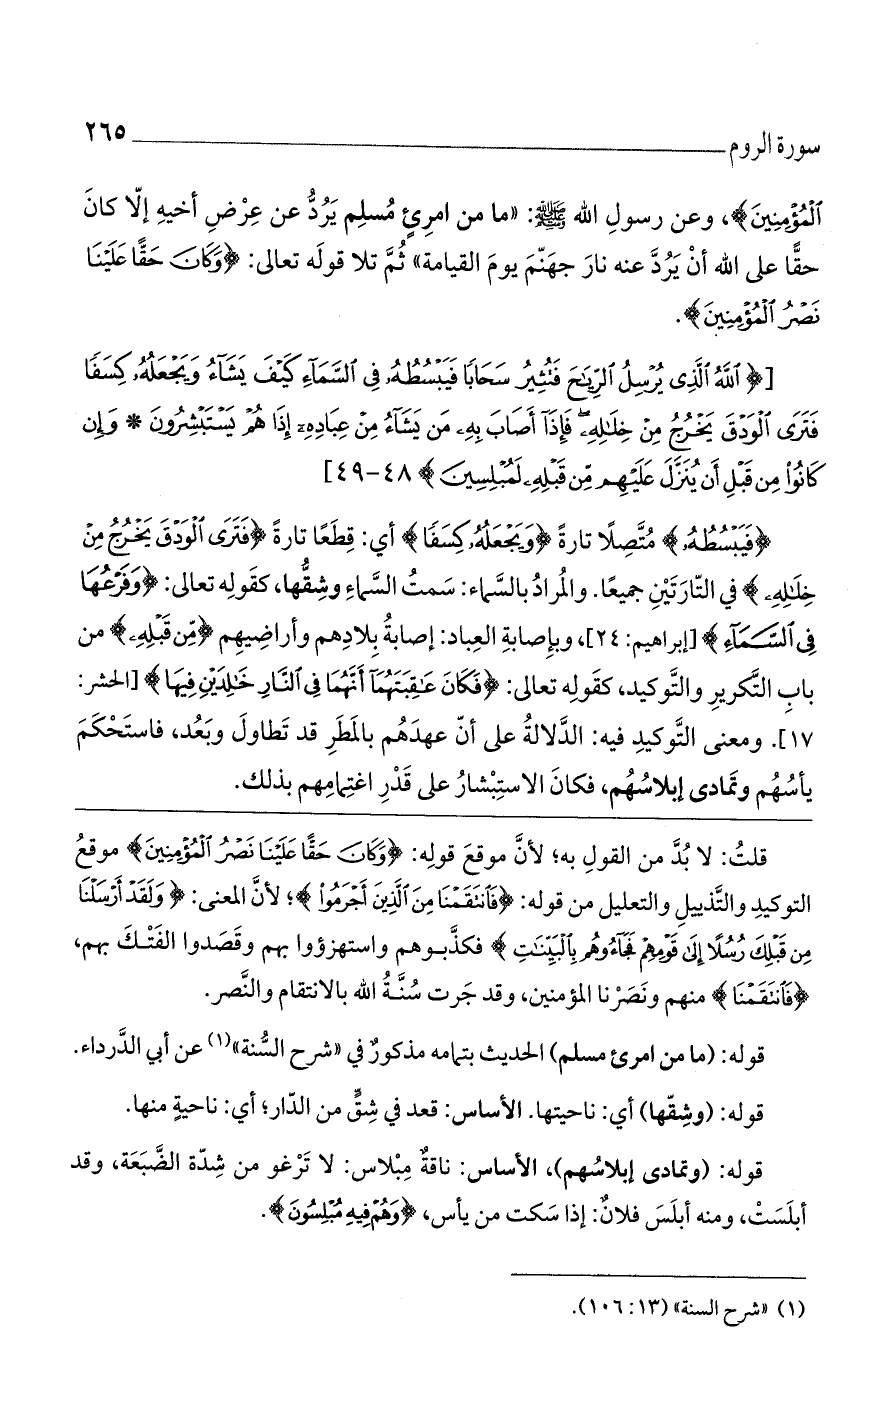 سورة الروم ٢٦٥
ٱلْمُؤْمِنِينَ﴾، وعن رسولِ الله ﷺ: «ما من امرِئٍ مُسلِم يَرُدُّ عن عِرْضِ أخيهِ إلّا كانَ
حقًّا على الله أنْ يَرُدَّ عنه نارَ جهَنّمَ يومَ القيامة» ثُمَّ تلا قولَه تعالى: ﴿وَكَانَ حَقًّا عَلَيْنَا
نَصْرُ ٱلْمُؤْمِنِينَ﴾.
[﴿ٱللَّهُ ٱلَّذِى يُرْسِلُ ٱلرِّيَٰحَ فَتُثِيرُ سَحَابًا فَيَبْسُطُهُۥ فِى ٱلسَّمَآءِ كَيْفَ يَشَآءُ وَيَجْعَلُهُۥ كِسَفًا
فَتَرَى ٱلْوَدْقَ يَخْرُجُ مِنْ خِلَٰلِهِۦ ۖ فَإِذَآ أَصَابَ بِهِۦ مَن يَشَآءُ مِنْ عِبَادِهِۦٓ إِذَا هُمْ يَسْتَبْشِرُونَ * وَإِن
كَانُوا۟ مِن قَبْلِ أَن يُنَزَّلَ عَلَيْهِم مِّن قَبْلِهِۦ لَمُبْلِسِينَ﴾ ٤٨-٤٩]
﴿فَيَبْسُطُهُۥ﴾ مُتَّصِلًا تارةً ﴿وَيَجْعَلُهُۥ كِسَفًا﴾ أي: قِطَعًا تارةً ﴿فَتَرَى ٱلْوَدْقَ يَخْرُجُ مِنْ
خِلَٰلِهِۦ﴾ في التّارَتَيْنِ جميعًا. والمُرادُ بالسَّماء: سَمتُ السَّماءِ وشِقُّها، كقَولِه تعالى: ﴿وَفَرْعُهَا
فِى ٱلسَّمَآءِ﴾ [إبراهيم: ٢٤]، وبإصابةِ العِباد: إصابةُ بِلادِهم وأراضِيهِم ﴿مِّن قَبْلِهِۦ﴾ من
بابِ التَّكريرِ والتَّوكيد، كقَولِه تعالى: ﴿فَكَانَ عَٰقِبَتَهُمَآ أَنَّهُمَا فِى ٱلنَّارِ خَٰلِدَيْنِ فِيهَا﴾ [الحشر:
١٧]. ومعنى التَّوكيدِ فيه: الدَّلالةُ على أنّ عهدَهُم بالمَطَرِ قد تَطاولَ وبَعُد، فاستَحْكَمَ
يأسُهُم وتمادى إبلاسُهُم، فكانَ الاستِبْشارُ على قَدْرِ اغتِمامِهم بذلك.
قلتُ: لا بُدَّ من القولِ به؛ لأنَّ موقعَ قولِه: ﴿وَكَانَ حَقًّا عَلَيْنَا نَصْرُ ٱلْمُؤْمِنِينَ﴾ موقعُ
التوكيدِ والتَّذييلِ والتعليل من قوله: ﴿فَٱنتَقَمْنَا مِنَ ٱلَّذِينَ أَجْرَمُوا۟﴾؛ لأنَّ المعنى: ﴿وَلَقَدْ أَرْسَلْنَا
مِن قَبْلِكَ رُسُلًا إِلَىٰ قَوْمِهِمْ فَجَآءُوهُم بِٱلْبَيِّنَٰتِ﴾ فكذَّبوهم واستهزؤوا بهم وقَصَدوا الفَتْكَ بهم،
﴿فَٱنتَقَمْنَا﴾ منهم ونَصَرْنا المؤمنين، وقد جَرت سُنَّةُ الله بالانتقام والنَّصر.
قوله: (ما من امرئ مسلم) الحديث بتمامه مذكورٌ في «شرح السُّنة»(١) عن أبي الدَّرداء.
قوله: (وشِقّها) أي: ناحيتها. الأساس: قعد في شِقٍّ من الدّار؛ أي: ناحيةٍ منها.
قوله: (وتمادى إبلاسُهم)، الأساس: ناقةٌ مِبْلاس: لا تَرْغو من شِدّة الضَّبَعَة، وقد
أبلَسَتْ، ومنه أبلَسَ فلانٌ: إذا سَكت من يأس، ﴿وَهُمْ فِيهِ مُبْلِسُونَ﴾.
(١) «شرح السنة» (١٣: ١٠٦).